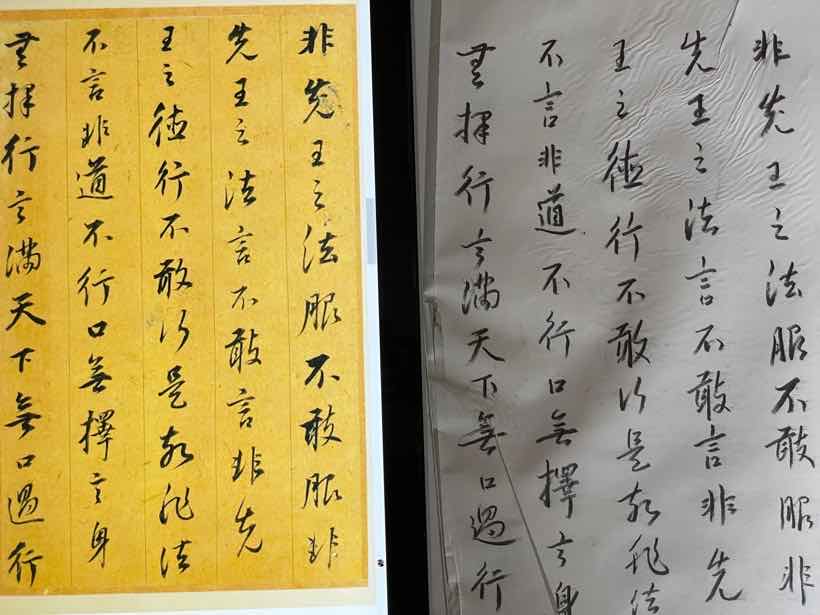 非先王之法服不敢服非
先王之法言不敢言非先
王之德行不敢行是故非法
不言非道不行口無擇言身
無擇行言滿天下無口過行
非先王之法服不敢服非
先王之法言不敢言非先
王之德行不敢行是故非法
不言非道不行口無擇言身
無擇行言滿天下無口過行